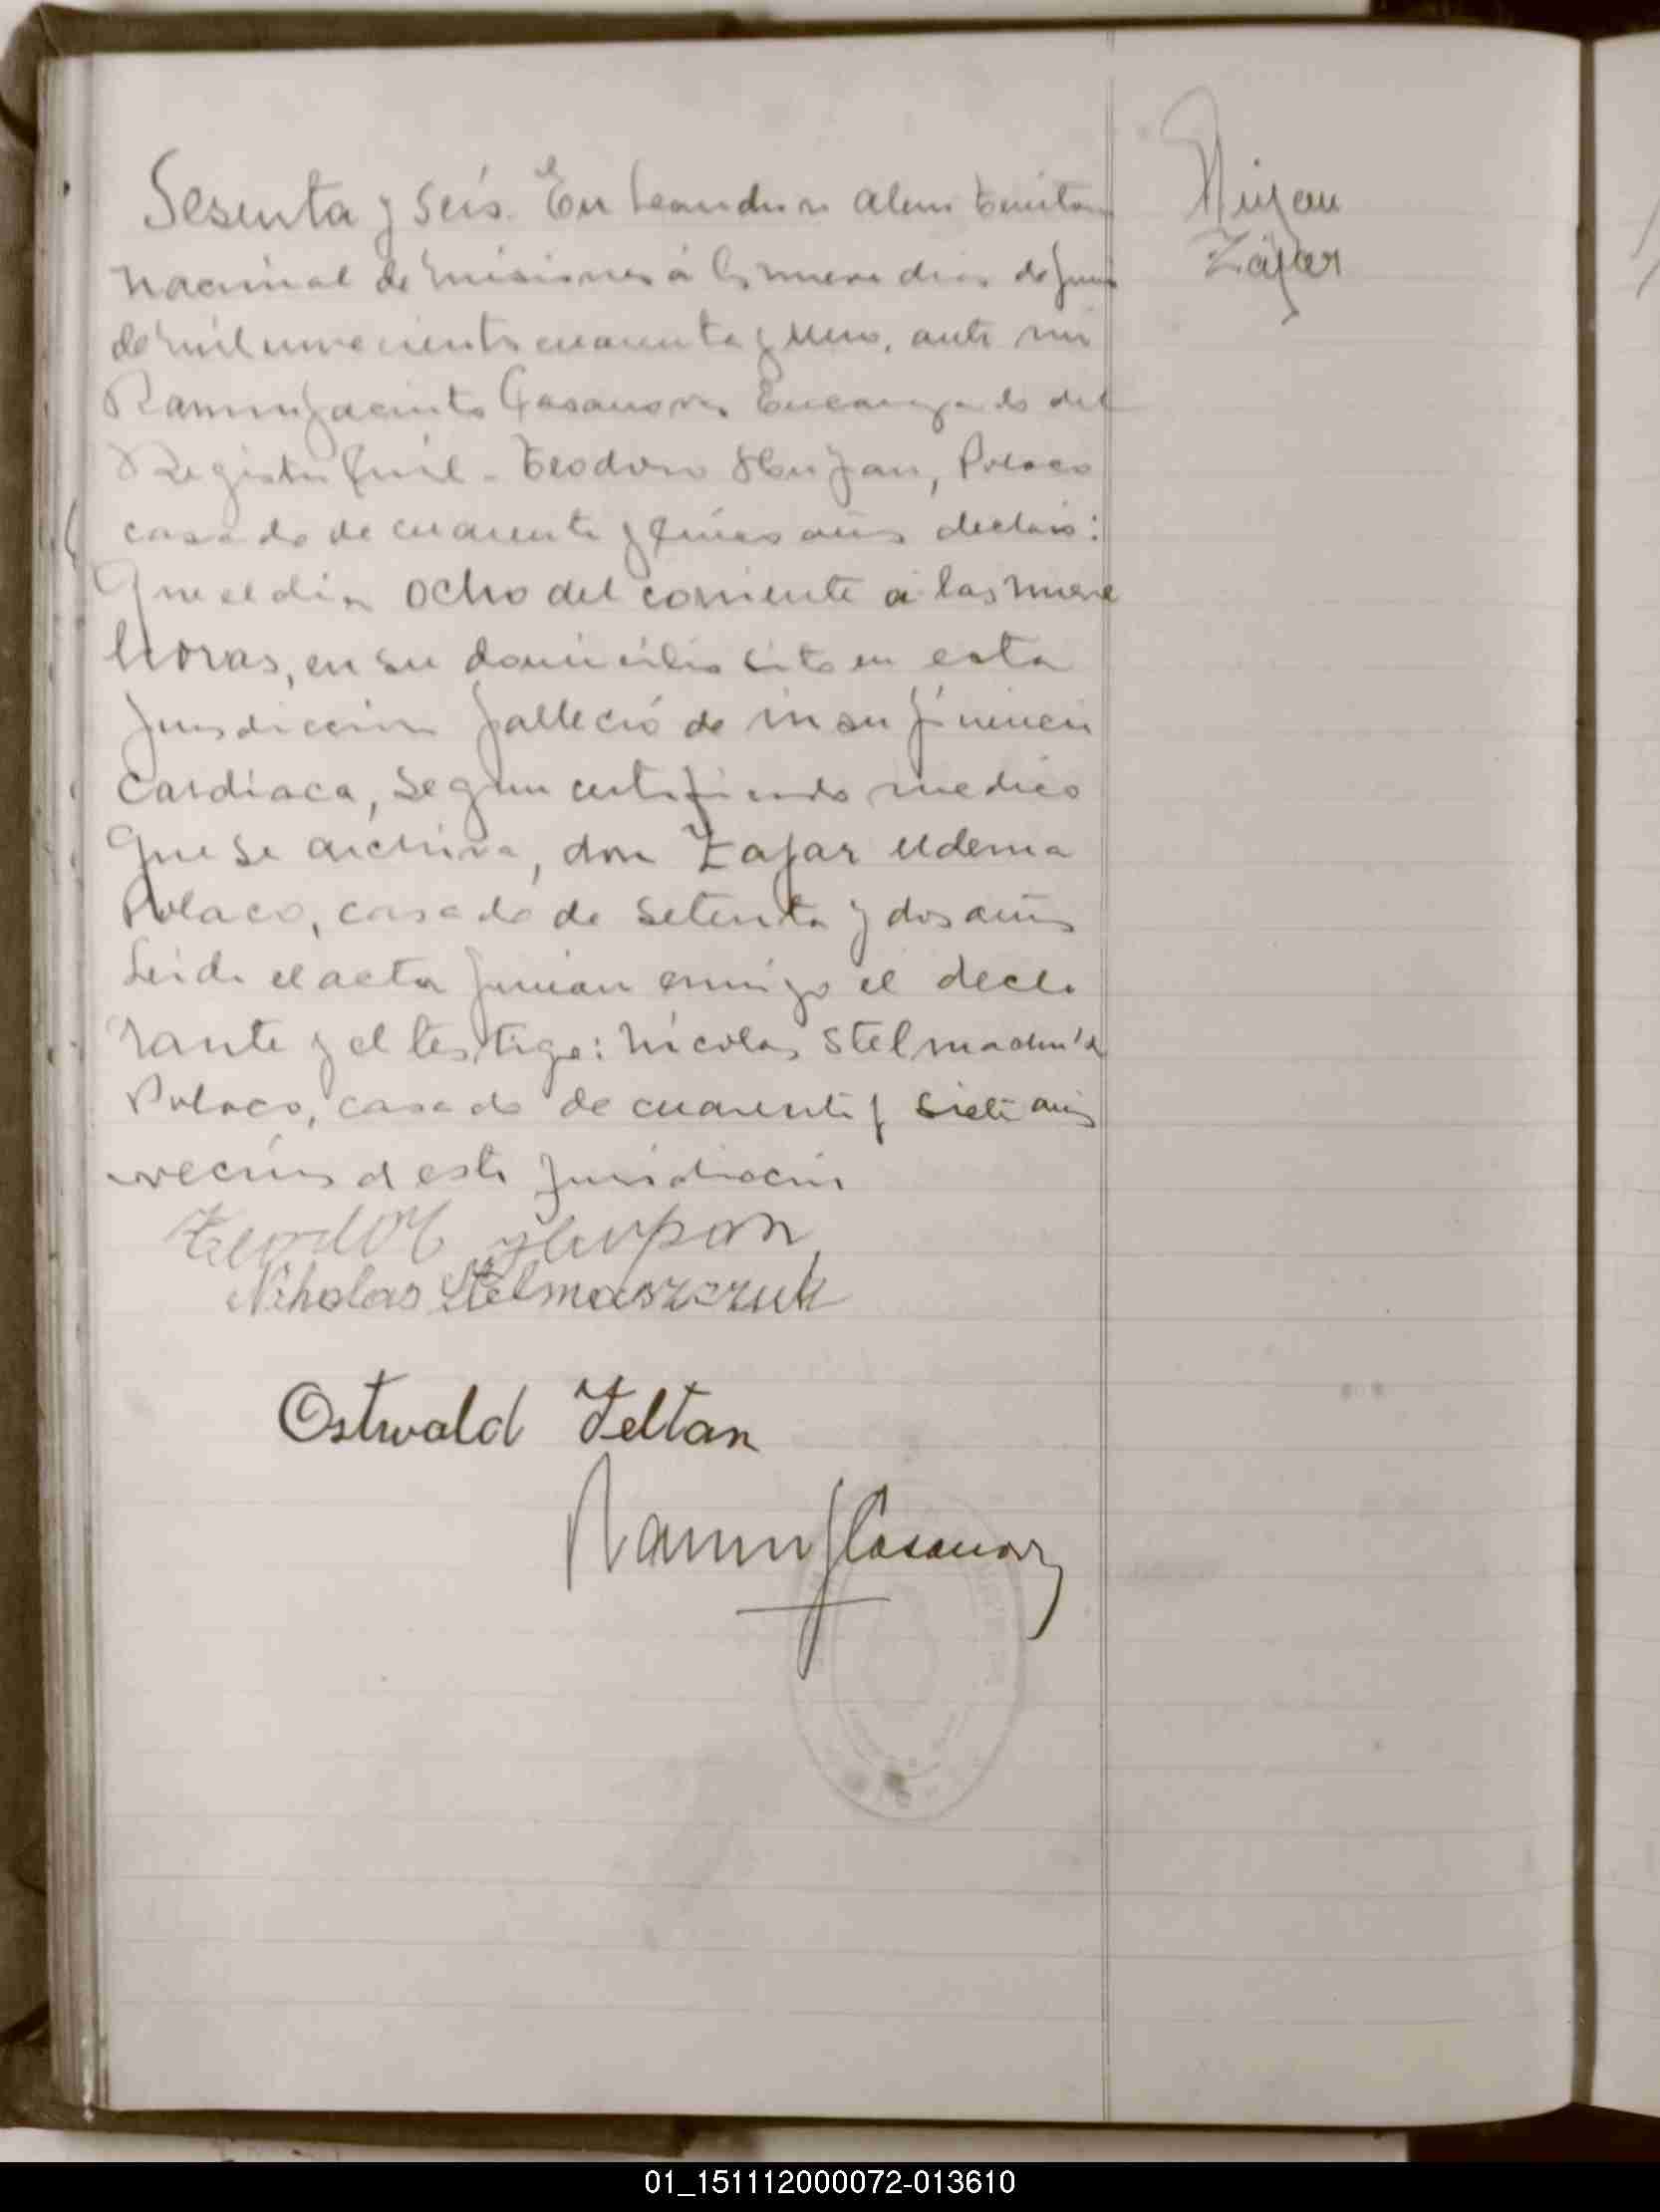 Sesenta y seis. En Leandro n Alem Territorio
Nacional de Misiones á los nueve dias de Junio
de mil novecientos cuarenta y uno, ante mi
Ramon Jacinto Casanova Encargado del
Registro Civil - Teodoro Polaco
casado de cuarenta y cinco años declaró:
Que el dia ocho del corriente a las nueve
horas, en su domicilio sito en esta
Jurisdiccion falleció de insuficiencia
Cardíaca, segun certificado medico
que se archiva, don Zajar
Polaco, casado de setenta y dos años
Leida el acta firman conmigo el decla
rante y el testigo: Nicolas
Polaco, casado de cuarenta y siete años
vecinos de esta Jurisdiccion
Teodor
Nikolas Stelmaszczuk
Ostwald Feltan
Ramon J Casanova
Zajar
01_151112000072-013610